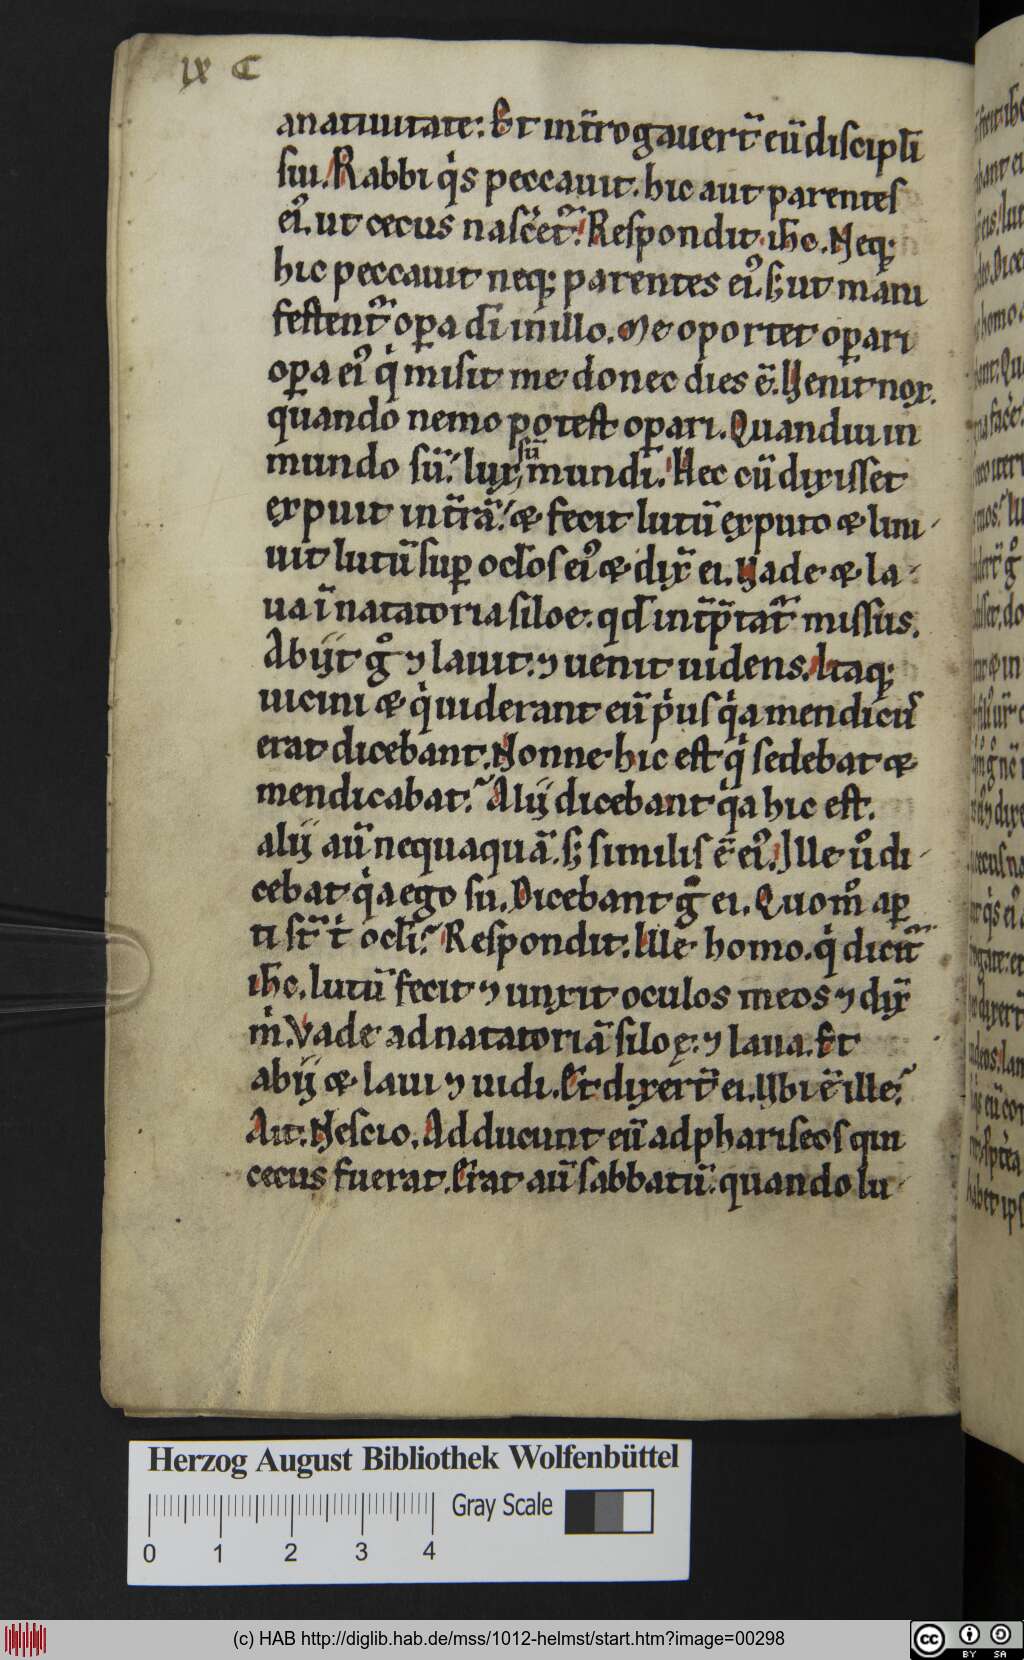 ix C
anatiuitate: Et int̄rogauert̄ eū discipl̄i
sui. Rabbi qͥs peccauit. hic aut parentes
ei᾽. ut cecus nascͤet᷑. Respondit ih̄c. Neqꝫ
hic peccauit neqꝫ parentes ei᾽. sꝫ ut mani
festent᷑ oꝑa dī in illo. Me oportet oꝑari
oꝑa ei᾽ qͥ misit me donec dies ē. Uenit nox.
quando nemo potest oꝑari. Quandiu in
mundo sū. lux sū mundi. Hec cū dixisset
expuit int̄rā. & fecit lutū exputo & lini
uit lutū suꝑ ocl̄os ei᾽ & dix̄ ei. Uade & la
ua ī natatoria siloe. qd̄ int̄p̄tat᷑ missus.
Abijt gͦ ⁊ lauit. ⁊ uenit uidens. Itaqꝫ
uicini & qͥ uiderant eū pͥus qͥa mendicus
erat dicebant. Nonne hic est qͥ sedebat &
mendicabat. Alij dicebant qͥa hic est.
alij aū nequaquā. sꝫ similis ē ei᾽. Ille uͦ di
cebat qͥa ego sū. Dicebant gͦ ei. Quomͦ aꝑ
ti st̄ tͥ ocl̄i. Respondit. Ille homo. qͥ dicit᷑
ih̄c. lutū fecit ⁊ unxit oculos meos ⁊ dix̄
mͥ. Vade ad natatoriā siloę. ⁊ laua. Et
abij & laui ⁊ uidi. Et dixert̄ ei. Ubi ē ille.
Ait. Nescio. Adducunt eū ad phariseos qui
cecus fuerat. Erat aū sabbatū. quando lu
Herzog August Bibliothek Wolfenbüttel
Gray Scale
0 1 2 3 4
(c) HAB http://diglib.hab.de/mss/1012-helmst/start.htm?image=00298
cc BY SA